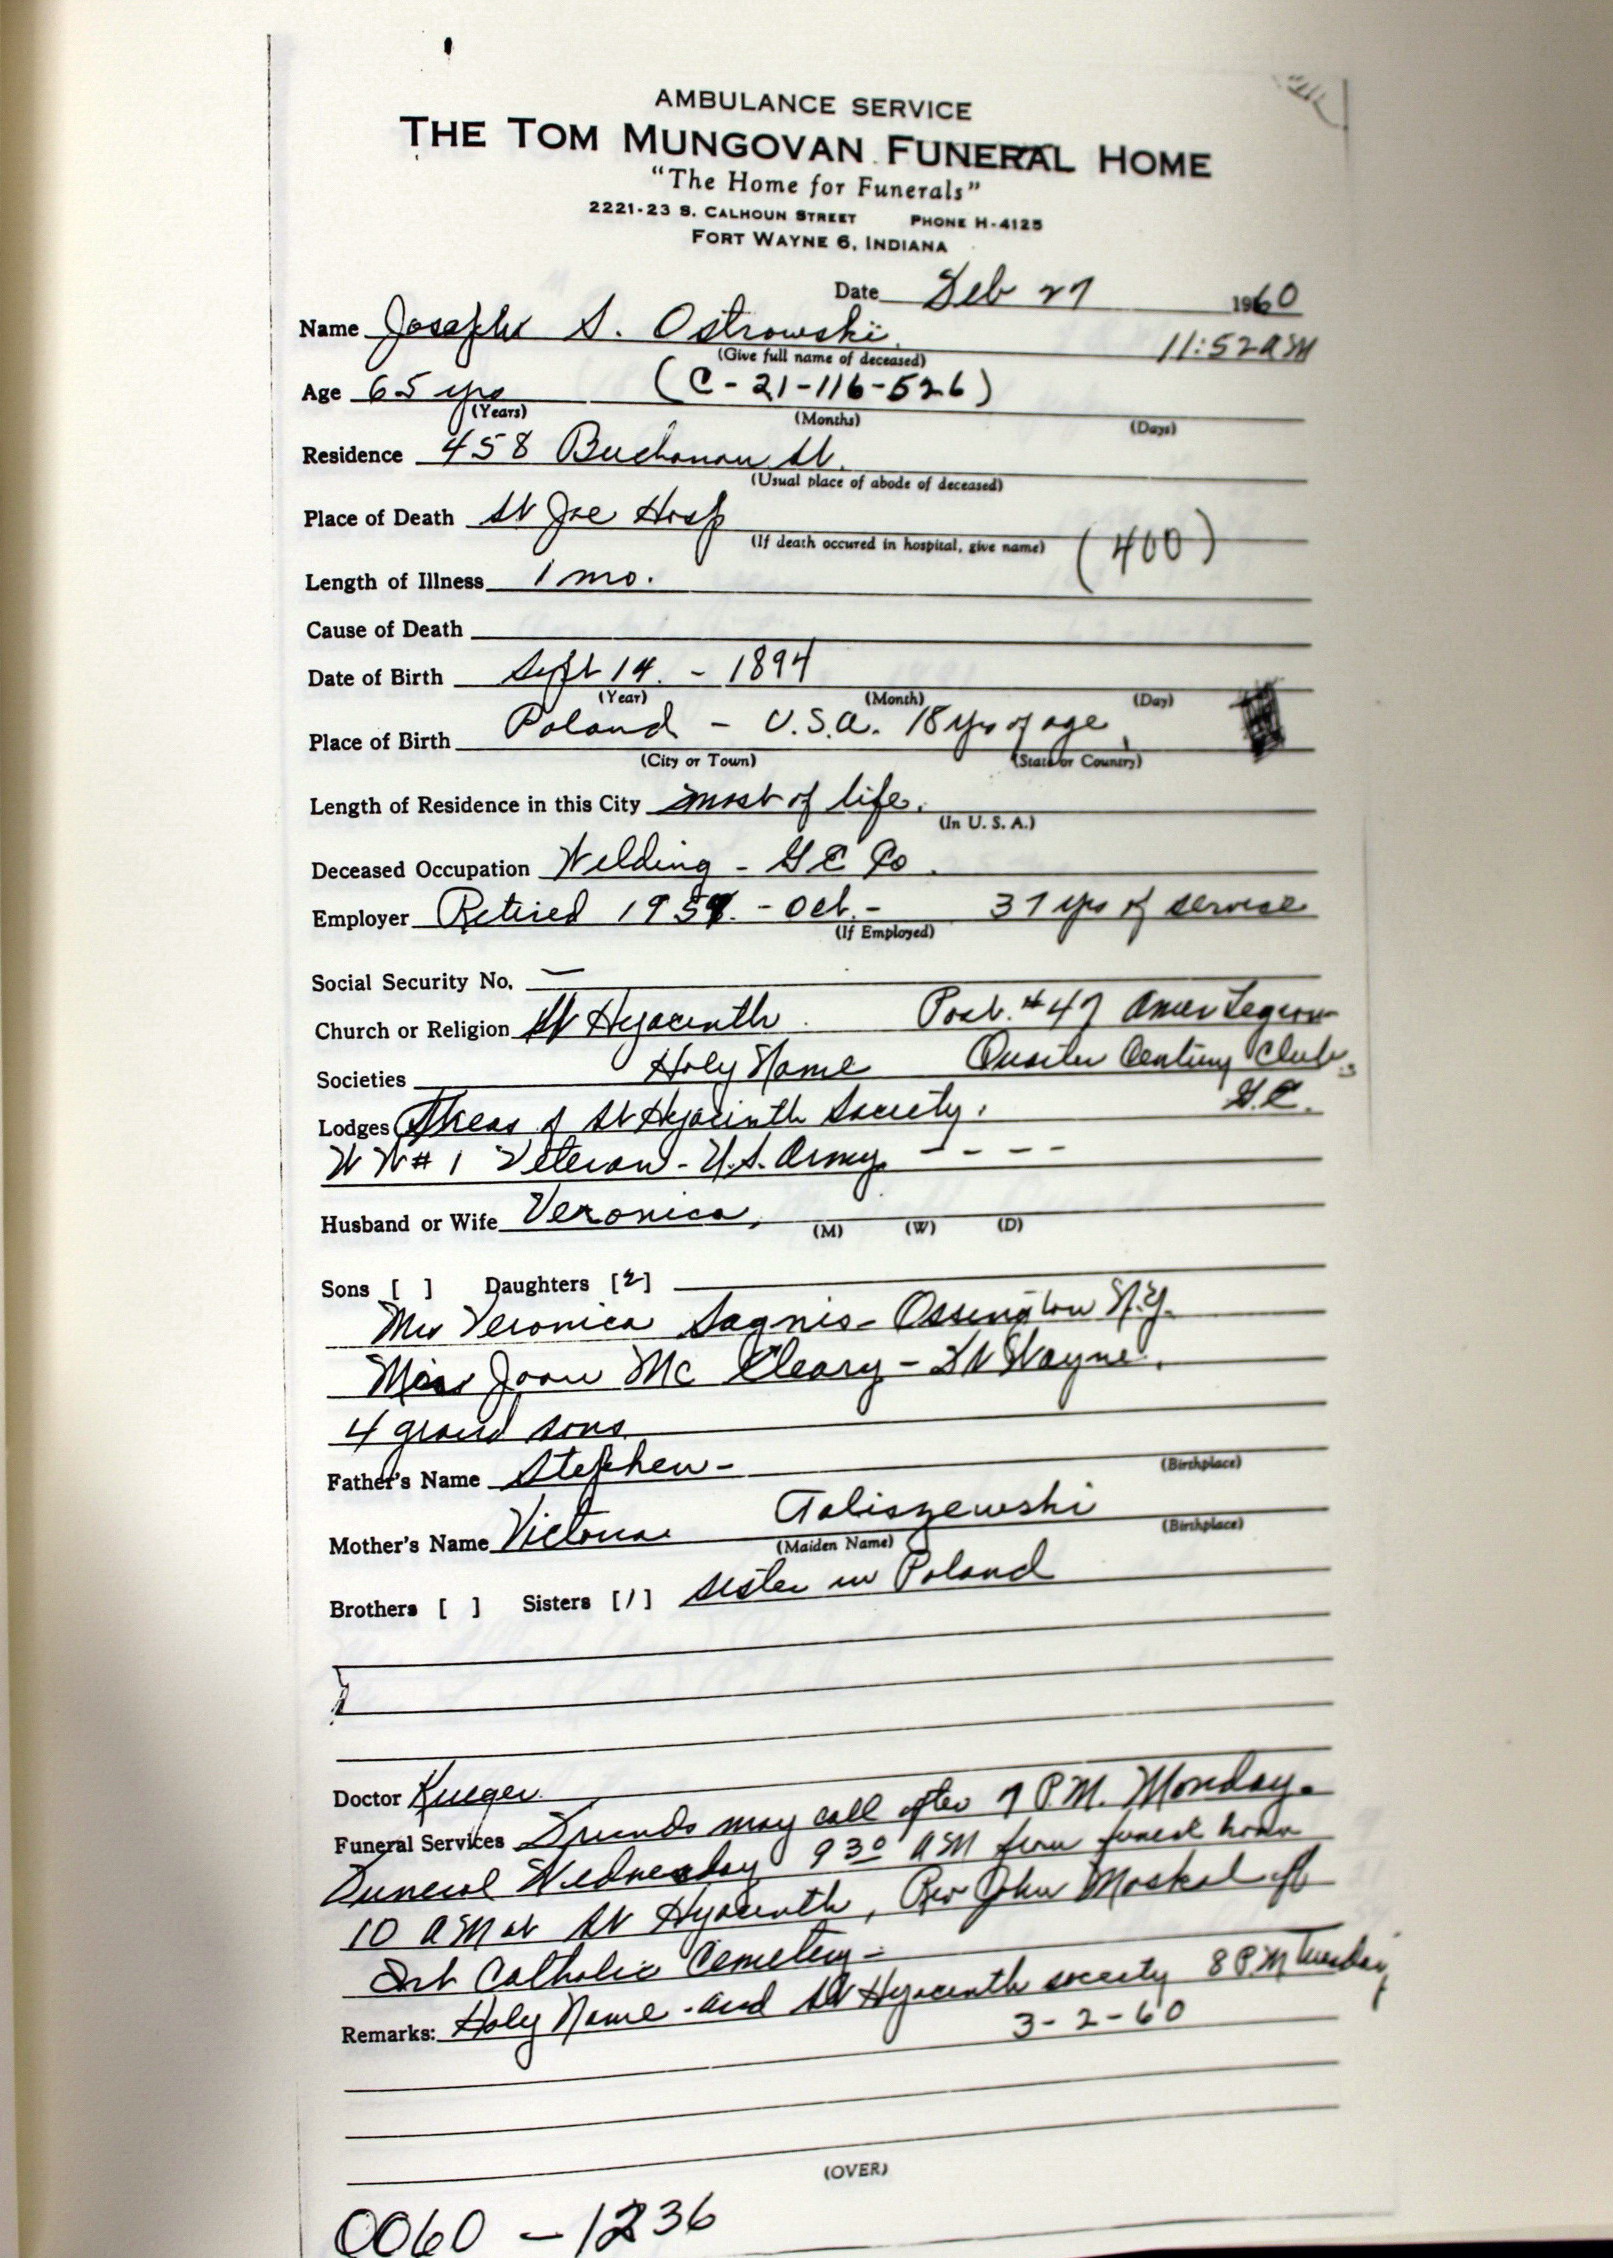 AMBULANCE SERVICE
THE TOM MUNGOVAN FUNERAL HOME
"The Home for Funerals"
2221-23 S. CALHOUN STREET PHONE H-4125
FORT WAYNE 6, INDIANA
Date Feb 27 1960
Name Joseph S. Ostrowski 11:52 AM
(Give full name of deceased)
Age 65 yrs (C-21-116-526)
(Years) (Months) (Days)
Residence 458 Buchanan St.
(Usual place of abode of deceased)
Place of Death St Joe Hosp
(If death occured in hospital, give name) (400)
Length of Illness 1 mo.
Cause of Death
Date of Birth Sept 14. - 1894
(Year) (Month) (Day)
Place of Birth Poland - U.S.A. 18 yrs of age
(City or Town) (State or Country)
Length of Residence in this City most of life.
(In U. S. A.)
Deceased Occupation Welding - GE Co.
Employer Retired 1959. - Oct. - 37 yrs of service
(If Employed)
Social Security No. —
Church or Religion St Hyacinth Post. #47 Amer Legion
Societies Holy Name Quarter Century Club
Lodges Treas of St Hyacinth Society. G.E.
WW#1 Veteran - U.S. Army - - - -
Husband or Wife Veronica,
(M) (W) (D)
Sons [ ] Daughters [2]
Mrs Veronica Sagnis - N.Y.
Joan Mc Cleary - Ft Wayne.
4 grand sons
Father's Name Stephen - (Birthplace)
Mother's Name Victoria Galiszewski
(Maiden Name) (Birthplace)
Brothers [ ] Sisters [1] sister in Poland
Doctor Krueger
Funeral Services Friends may call after 7 P.M. Monday.
Funeral Wednesday 9 30 AM from funeral home
10 AM at St Hyacinth, Rev John Moskal off
Int Catholic Cemetery -
Remarks: Holy Name - and St Hyacinth society 8 P.M Tuesday
3-2-60
(OVER)
0060 - 1236